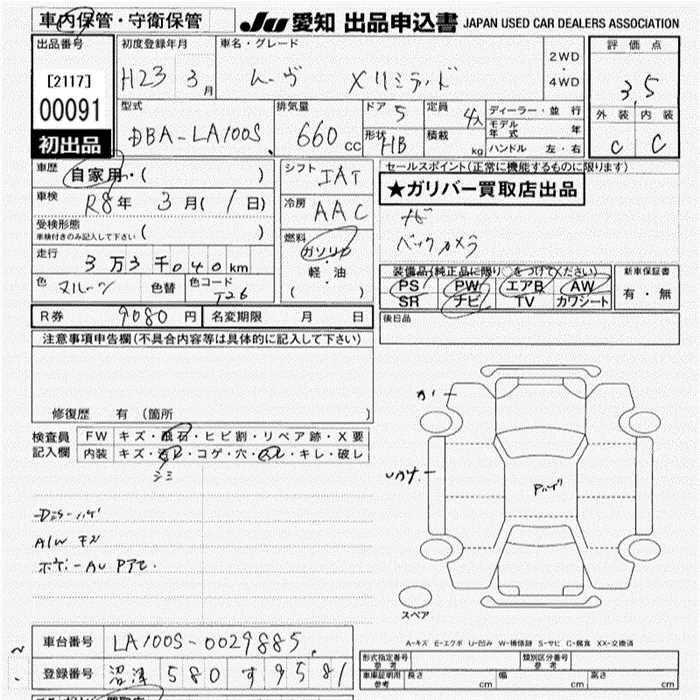 車内保管・守衛保管 JU 愛知 出品申込書 JAPAN USED CAR DEALERS ASSOCIATION
出品番号 [2117] 00091 初出品
初度登録年月 H23 3月
車名・グレード ムーヴ Xリミテッド
2WD・4WD
評価点 3.5
外装 内装
C C
型式 DBA-LA100S
排気量 660cc
ドア 5
形状 HB
定員 4人
積載 kg
ディーラー・並行
モデル年式 年
ハンドル 左・右
車歴 自家用・( )
車検 R8年 3月(1日)
受検形態 ( )
車検付きのみ記入して下さい
走行 3万3千040km
色 マルーン 色替 色コード T26
シフト IAT
冷房 AAC
燃料 ガソリン・軽・油 ( )
セールスポイント(正常に機能するものに限ります)
★ガリバー買取店出品
ナビ
バックカメラ
装備品(純正品に限り○をつけてください)
PS PW エアB AW
SR ナビ TV カワシート
新車保証書 有・無
R券 9080円 名変期限 月 日
後日品
注意事項申告欄(不具合内容等は具体的に記入して下さい)
修復歴 有 (箇所 )
検査員記入欄
FW キズ・飛石・ヒビ割・リペア跡・X要
内装 キズ・汚レ・コゲ・穴・スレ・キレ・破レ
シミ
A/W キズ
スペア
A-キズ E-エクボ U-凹み W-補修跡 S-サビ C-腐食 XX-交換済
車台番号 LA100S-0029885
登録番号 沼津 580 す 9581
形式指定番号 参考 類別区分番号 参考
車庫証明用 参考 長さ cm 幅 cm 高さ cm